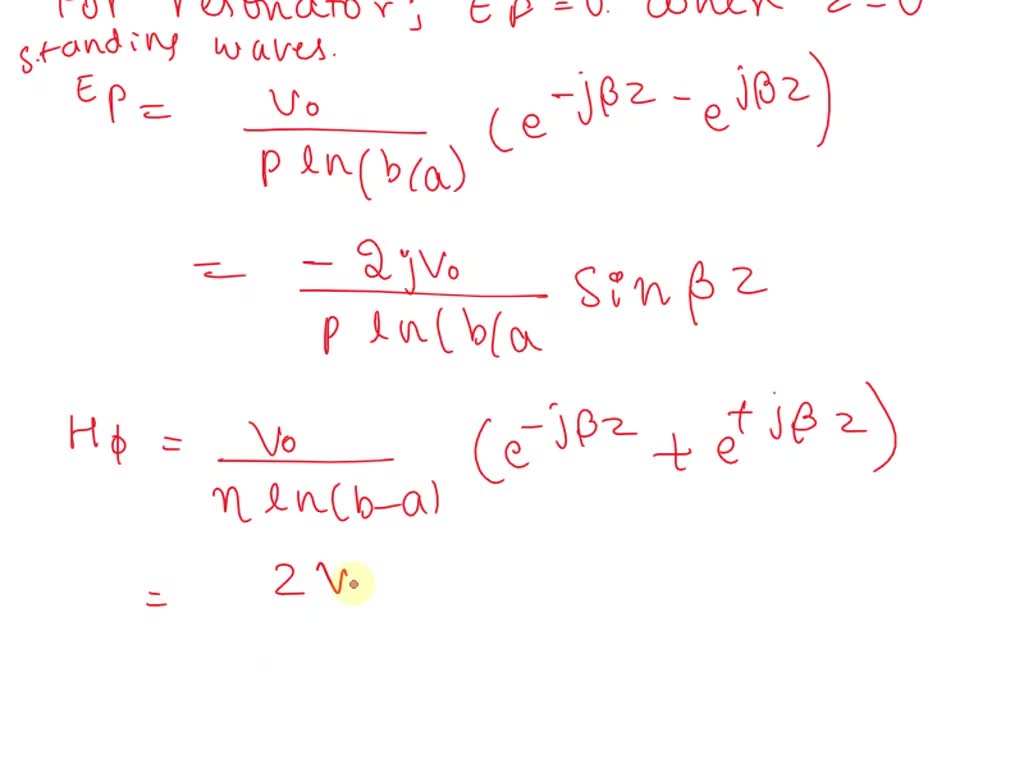 For resonator, Eρ = 0. when z = 0
standing waves.
Eρ = V₀ / ρ ln(b/a) (e^-jβz - e^jβz)
= -2jV₀ / ρ ln(b/a Sin βz
Hφ = V₀ / η ln(b-a) (e^-jβz + e^+jβz)
= 2V₀